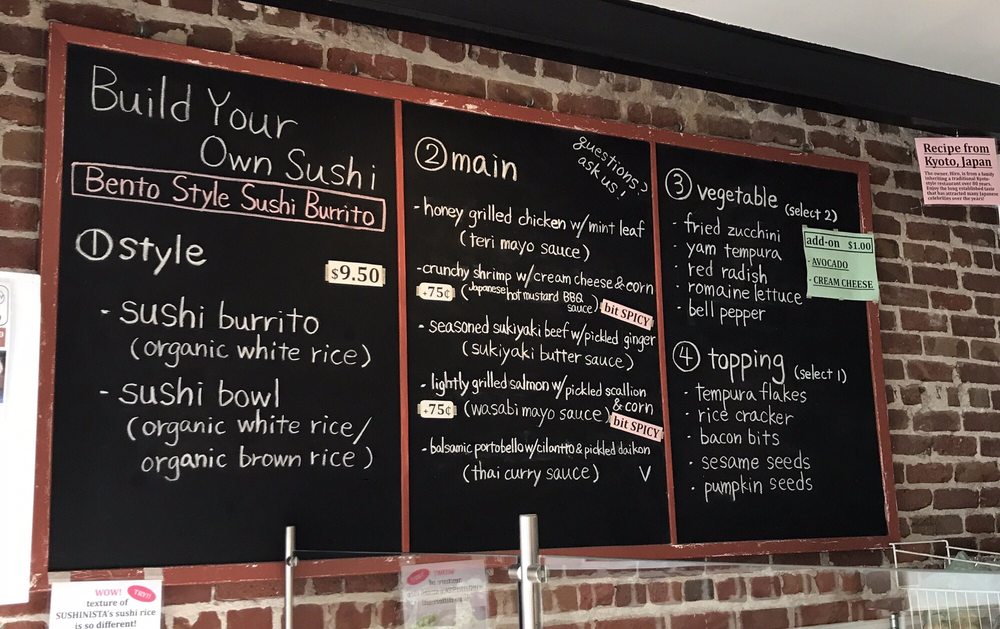 Build Your
Own Sushi
Bento Style Sushi Burrito
① style
$9.50
- sushi burrito
(organic white rice)
- sushi bowl
(organic white rice/
organic brown rice)
② main
questions?
ask us!
- honey grilled chicken w/mint leaf
(teri mayo sauce)
- crunchy shrimp w/cream cheese & corn
+75¢ (Japanese hot mustard BBQ
sauce) bit SPICY
- seasoned sukiyaki beef w/pickled ginger
(sukiyaki butter sauce)
- lightly grilled salmon w/pickled scallion
& corn
+75¢ (wasabi mayo sauce) bit SPICY
- balsamic portobello w/cilantto & pickled daikon
(thai curry sauce) V
③ vegetable (select 2)
- fried zucchini
- yam tempura
- red radish
- romaine lettuce
- bell pepper
add-on $1.00
- AVOCADO
- CREAM CHEESE
④ topping (select 1)
- tempura flakes
- rice cracker
- bacon bits
- sesame seeds
- pumpkin seeds
Recipe from
Kyoto, Japan
The owner, Hiro, is from a family
inheriting a traditional Kyoto-
style restaurant over 80 years.
Enjoy the long established taste
that has attracted many Japanese
celebrities over the years!
WOW! TRY!!
texture of
SUSHINISTA's sushi rice
is so different!